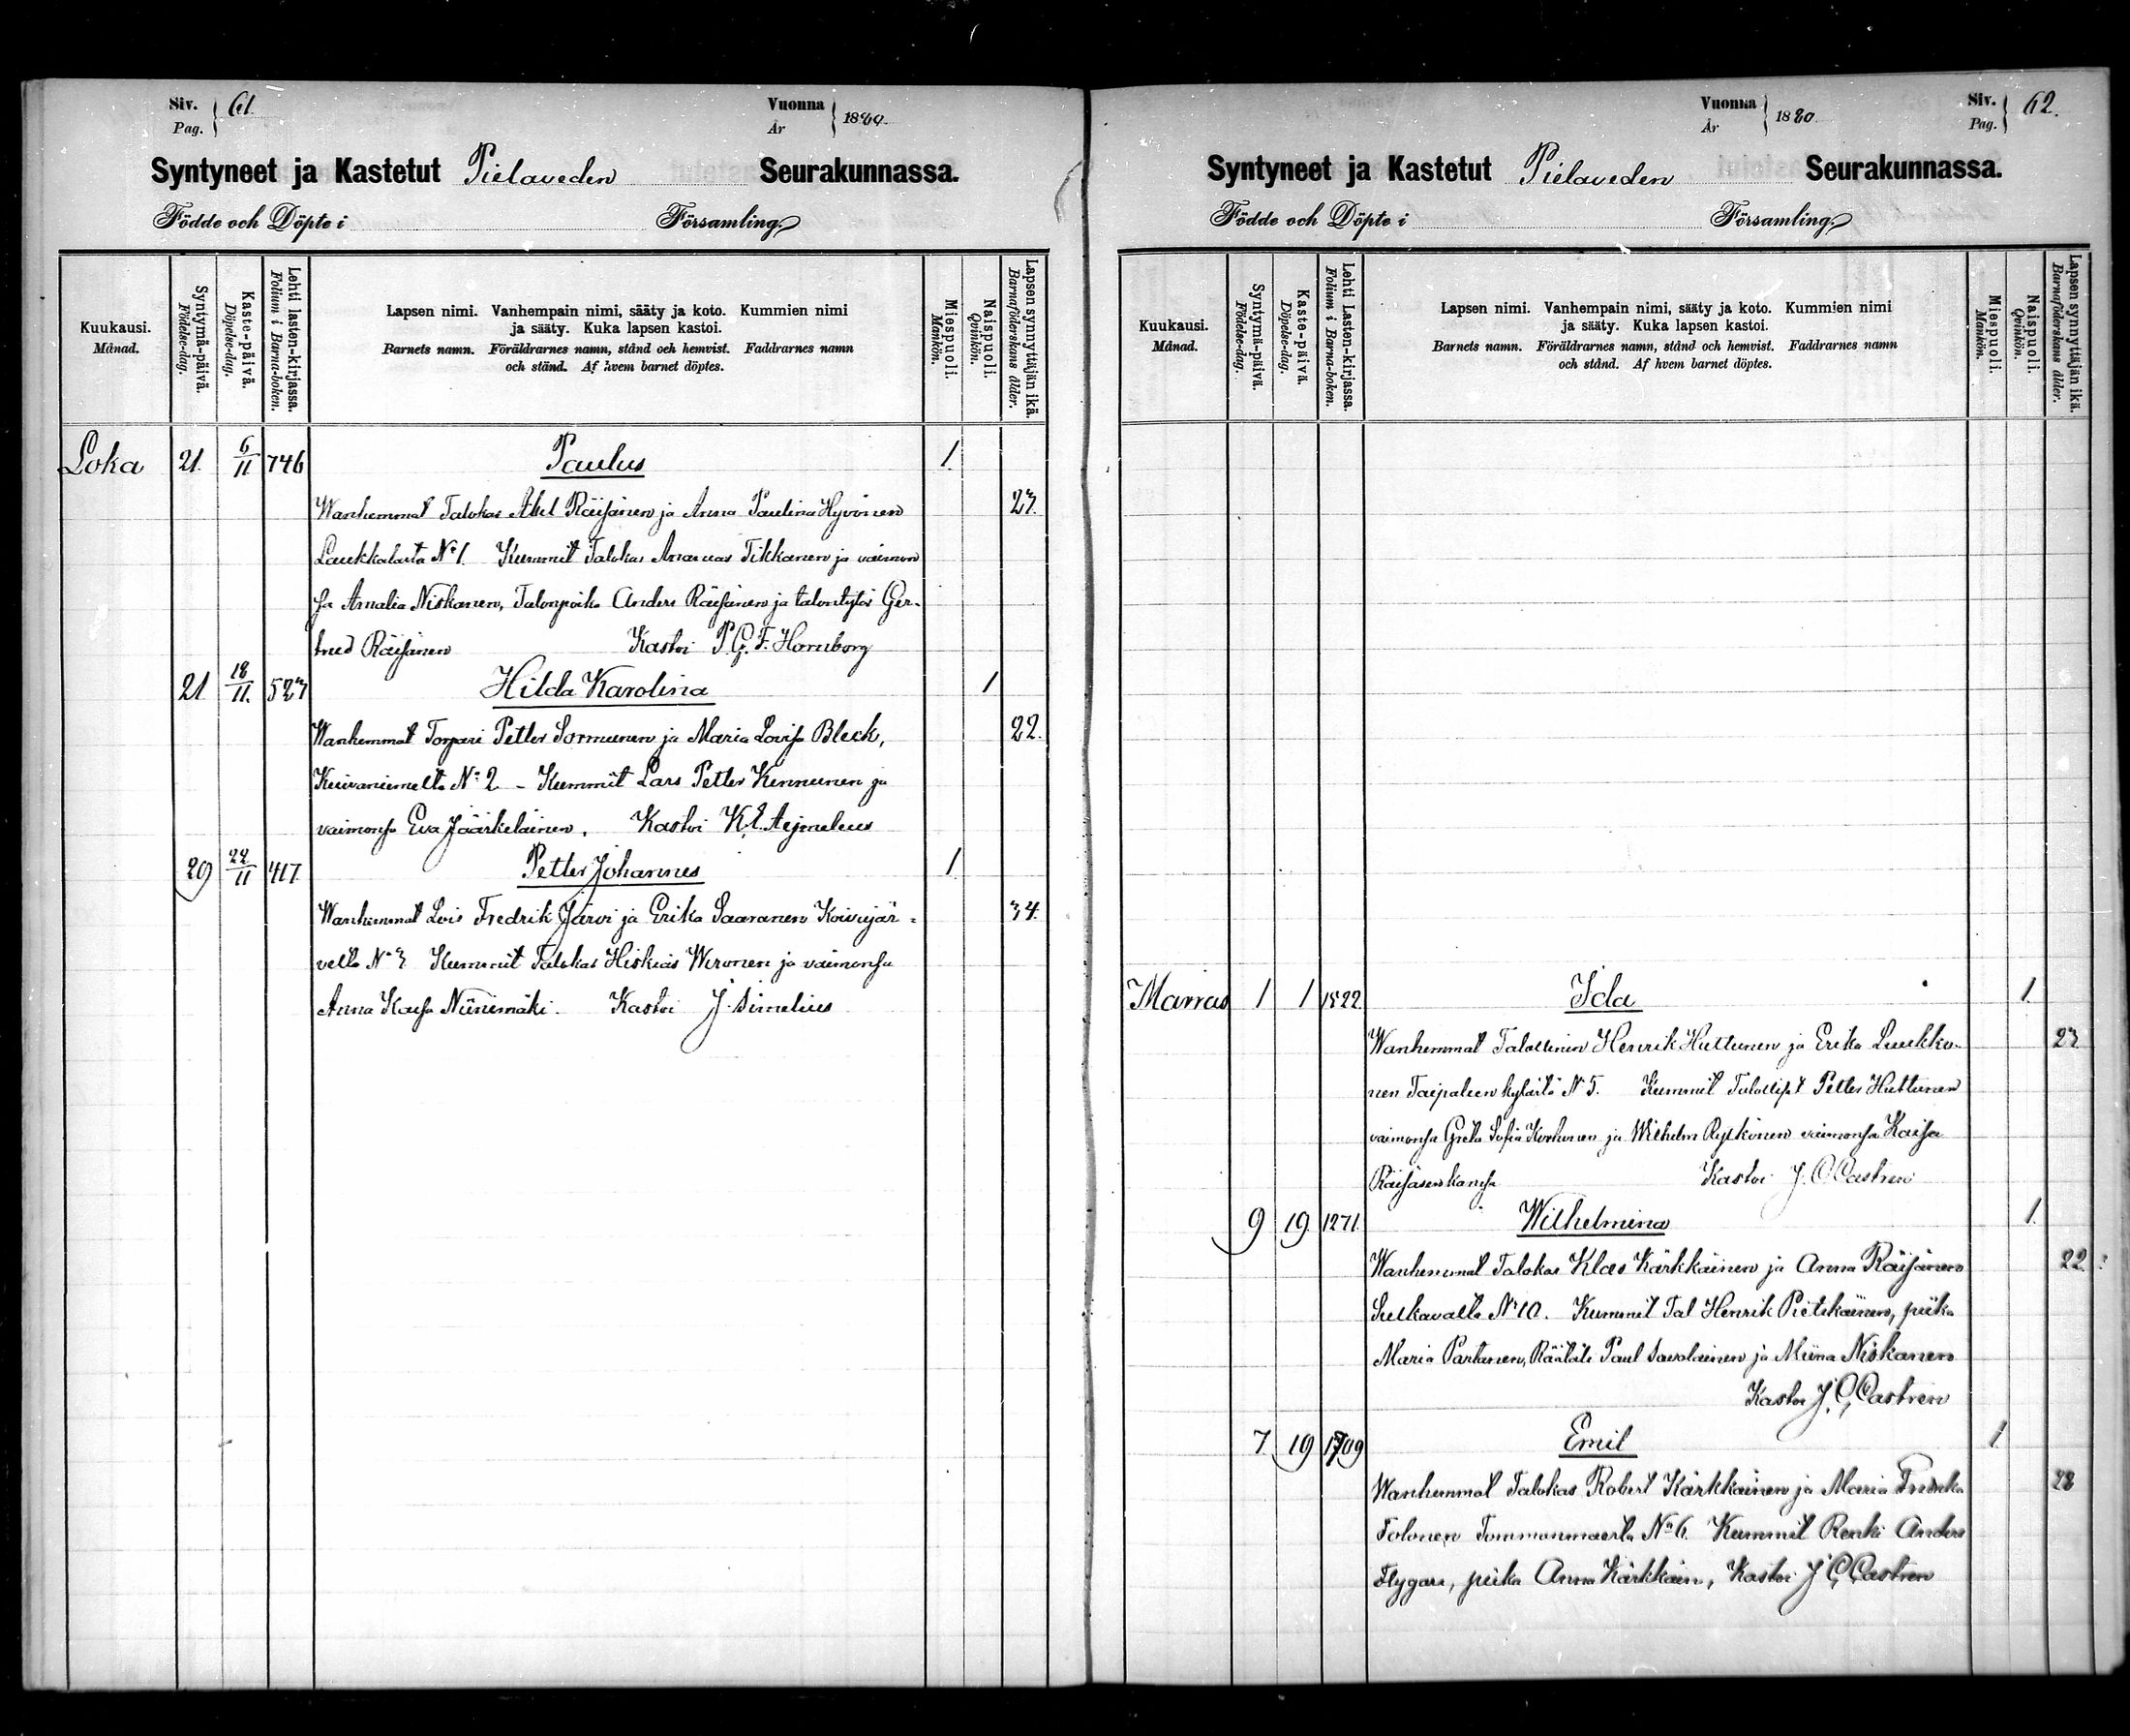 Siv. Pag. 61.
Vuonna År 1880.
Syntyneet ja Kastetut Pielaveden Seurakunnassa.
Födde och Döpte i Församling.
Kuukausi. Månad.
Syntymä-päivä. Födelse-dag.
Kaste-päivä. Döpelse-dag.
Lehti lasten-kirjassa. Folium i Barna-boken.
Lapsen nimi. Vanhempain nimi, sääty ja koto. Kummien nimi
ja sääty. Kuka lapsen kastoi.
Barnets namn. Föräldrarnes namn, stånd och hemvist. Faddrarnes namn
och stånd. Af hvem barnet döptes.
Miespuoli. Mankön.
Naispuoli. Qvinkön.
Lapsen synnyttäjän ikä. Barnaföderskans ålder.
Loka 21. 6/11 746 Paulus 1.
Wanhemmat Talokas Abel Räisänen ja Anna Paulina Hyvönen 23.
Laukkalasta No 1. Kummit Talokas Ananias Tikkanen ja vaimon
sa Amalia Niskanen, Talonpoika Anders Räisänen ja talontytär Ger-
trud Räisänen Kastoi P.G.F. Hornborg
21 18/11. 523 Hilda Karolina 1
Wanhemmat Torpari Petter Sormunen ja Maria Lovisa Bleck, 22.
Kuivaniemeltä No 2 - Kummit Lars Petter Kinnunen ja
vaimonsa Eva Jääskeläinen. Kastoi K.E. Aejmelæus
29 22/11 417. Petter Johannes 1.
Wanhemmat Lois Fredrik Järvi ja Erika Saaranen Koivujär= 34.
vellä No 3 Kummit Talokas Hiskias Wironen ja vaimonsa
Anna Kaisa Niinimäki. Kastoi J. Simelius
Vuonna År 1880.
Siv. Pag. 62.
Syntyneet ja Kastetut Pielaveden Seurakunnassa.
Födde och Döpte i Församling.
Kuukausi. Månad.
Syntymä-päivä. Födelse-dag.
Kaste-päivä. Döpelse-dag.
Lehti Lasten-kirjassa. Folium i Barna-boken.
Lapsen nimi. Vanhempain nimi, sääty ja koto. Kummien nimi
ja sääty. Kuka lapsen kastoi.
Barnets namn. Föräldrarnes namn, stånd och hemvist. Faddrarnes namn
och stånd. Af hvem barnet döptes.
Miespuoli. Mankön.
Naispuoli. Qvinkön.
Lapsen synnyttäjän ikä. Barnaföderskans ålder.
Marras 1 1 1522. Ida 1.
Wanhemmat Talollinen Henrik Huttunen ja Erika Luukko- 23
nen Taipaleen kylästä No 5. Kummit Talolliset Petter Huttunen
vaimonsa Greta Sofia Korhonen ja Wilhelm Rytkönen vaimonsa Kaisa
Räisäsen kanssa Kastoi J. C. Castren
9 19 1271. Wilhelmina 1.
Wanhemmat Talokas Klas Kärkkäinen ja Anna Räisänen 22.
Sulkavalta No 10. Kummit Tal Henrik Pietikäinen, piika
Maria Partanen, Räätäli Paul Savolainen ja Miina Niskanen
Kastoi J. C. Castren
7. 19 1709 Emil 1.
Wanhemmat Talokas Robert Kärkkäinen ja Maria Fredrika 28
Tolonen Tommonmaerta No 6. Kummit Renki Anders
Flygare, piika Anna Kärkkäin, Kastoi J C Castren